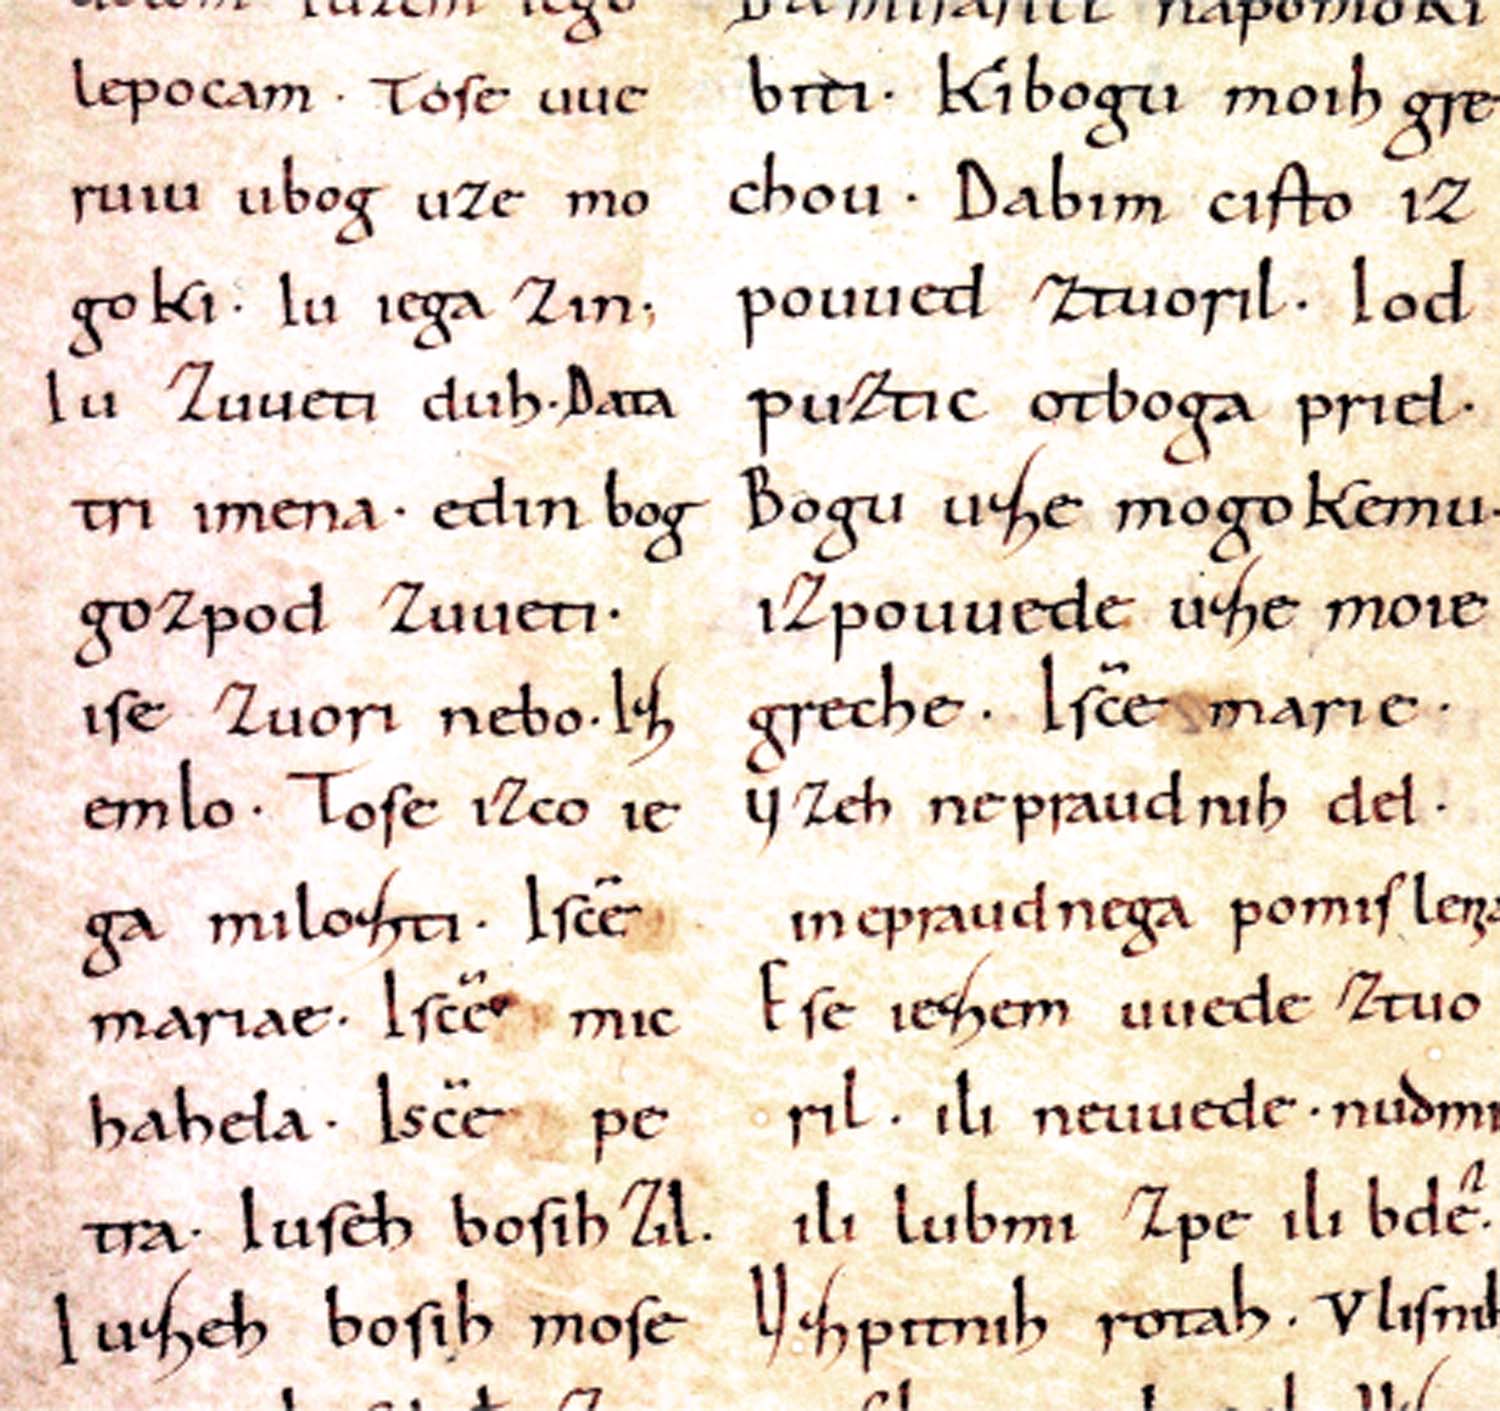 lepocam · Tose uue
ruiu ubog uze mo
goki · Iu iega Zin ·
Iu Zuueti duh · Data
tri imena · edin bog
gozpod Zuueti ·
ise Zuori nebo · Isɧ
emlo · Tose izco ie
ga milosɧti · Isc̄e
mariae · Isc̄e mic
hahela · Isc̄e pe
tra · Iuseh bosih Zil.
Iusɧeh bosih mose
briti · Kibogu moih gre
chou · Dabim cisto iz
pouued Ztuoril · Iod
puztic otboga priel ·
Bogu usɧe mogokemu ·
izpouuede usɧe moie
greche · Isc̄e marie ·
y Zeh nepraudnih del ·
inepraudnega
Ese iesɧem uuede Ztuo
ril · ili neuuede · nudmi
ili lubmi Zpe ili
rotah · Vlisnih